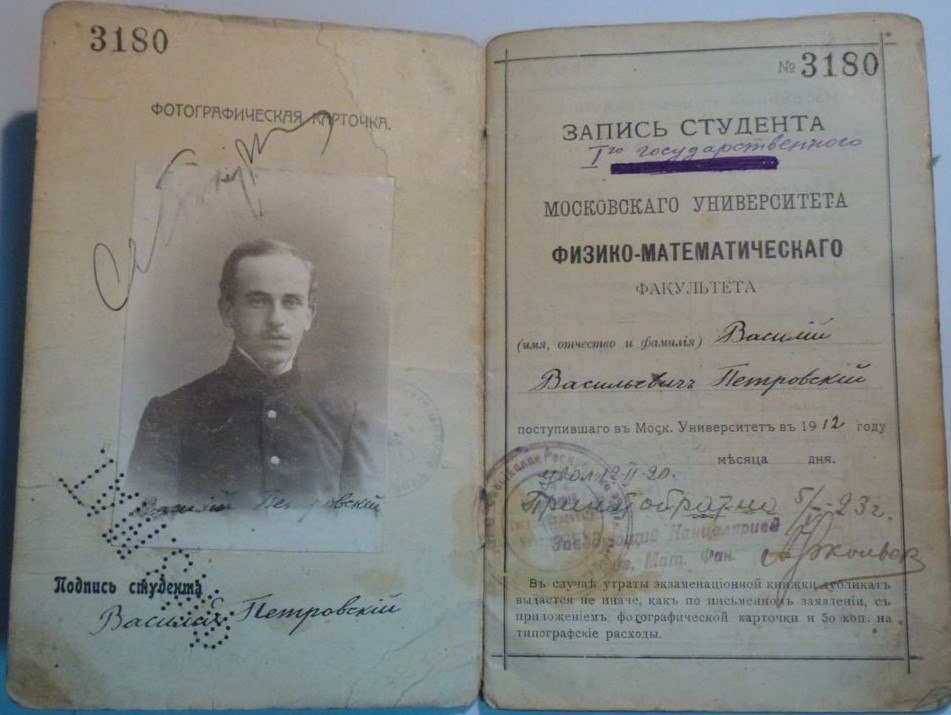 3180
ФОТОГРАФИЧЕСКАЯ КАРТОЧКА.
Василій Петровскій
Подпись студента
Василій Петровскій
№ 3180
ЗАПИСЬ СТУДЕНТА
Iго государственного
МОСКОВСКАГО УНИВЕРСИТЕТА
ФИЗИКО-МАТЕМАТИЧЕСКАГО
ФАКУЛЬТЕТА
(имя, отчество и фамилія) Василій
Васильевичъ Петровскій
поступившаго въ Моск. Университетъ въ 1912 году
мѣсяца дня.
5/I-23г.
Заведующий Канцелярией
Мат. Фак.
Въ случаѣ утраты экзаменаціонной книжки дубликатъ
выдается не иначе, какъ по письменномъ заявленіи, съ
приложеніемъ фотографической карточки и 50 коп. на
типографскіе расходы.